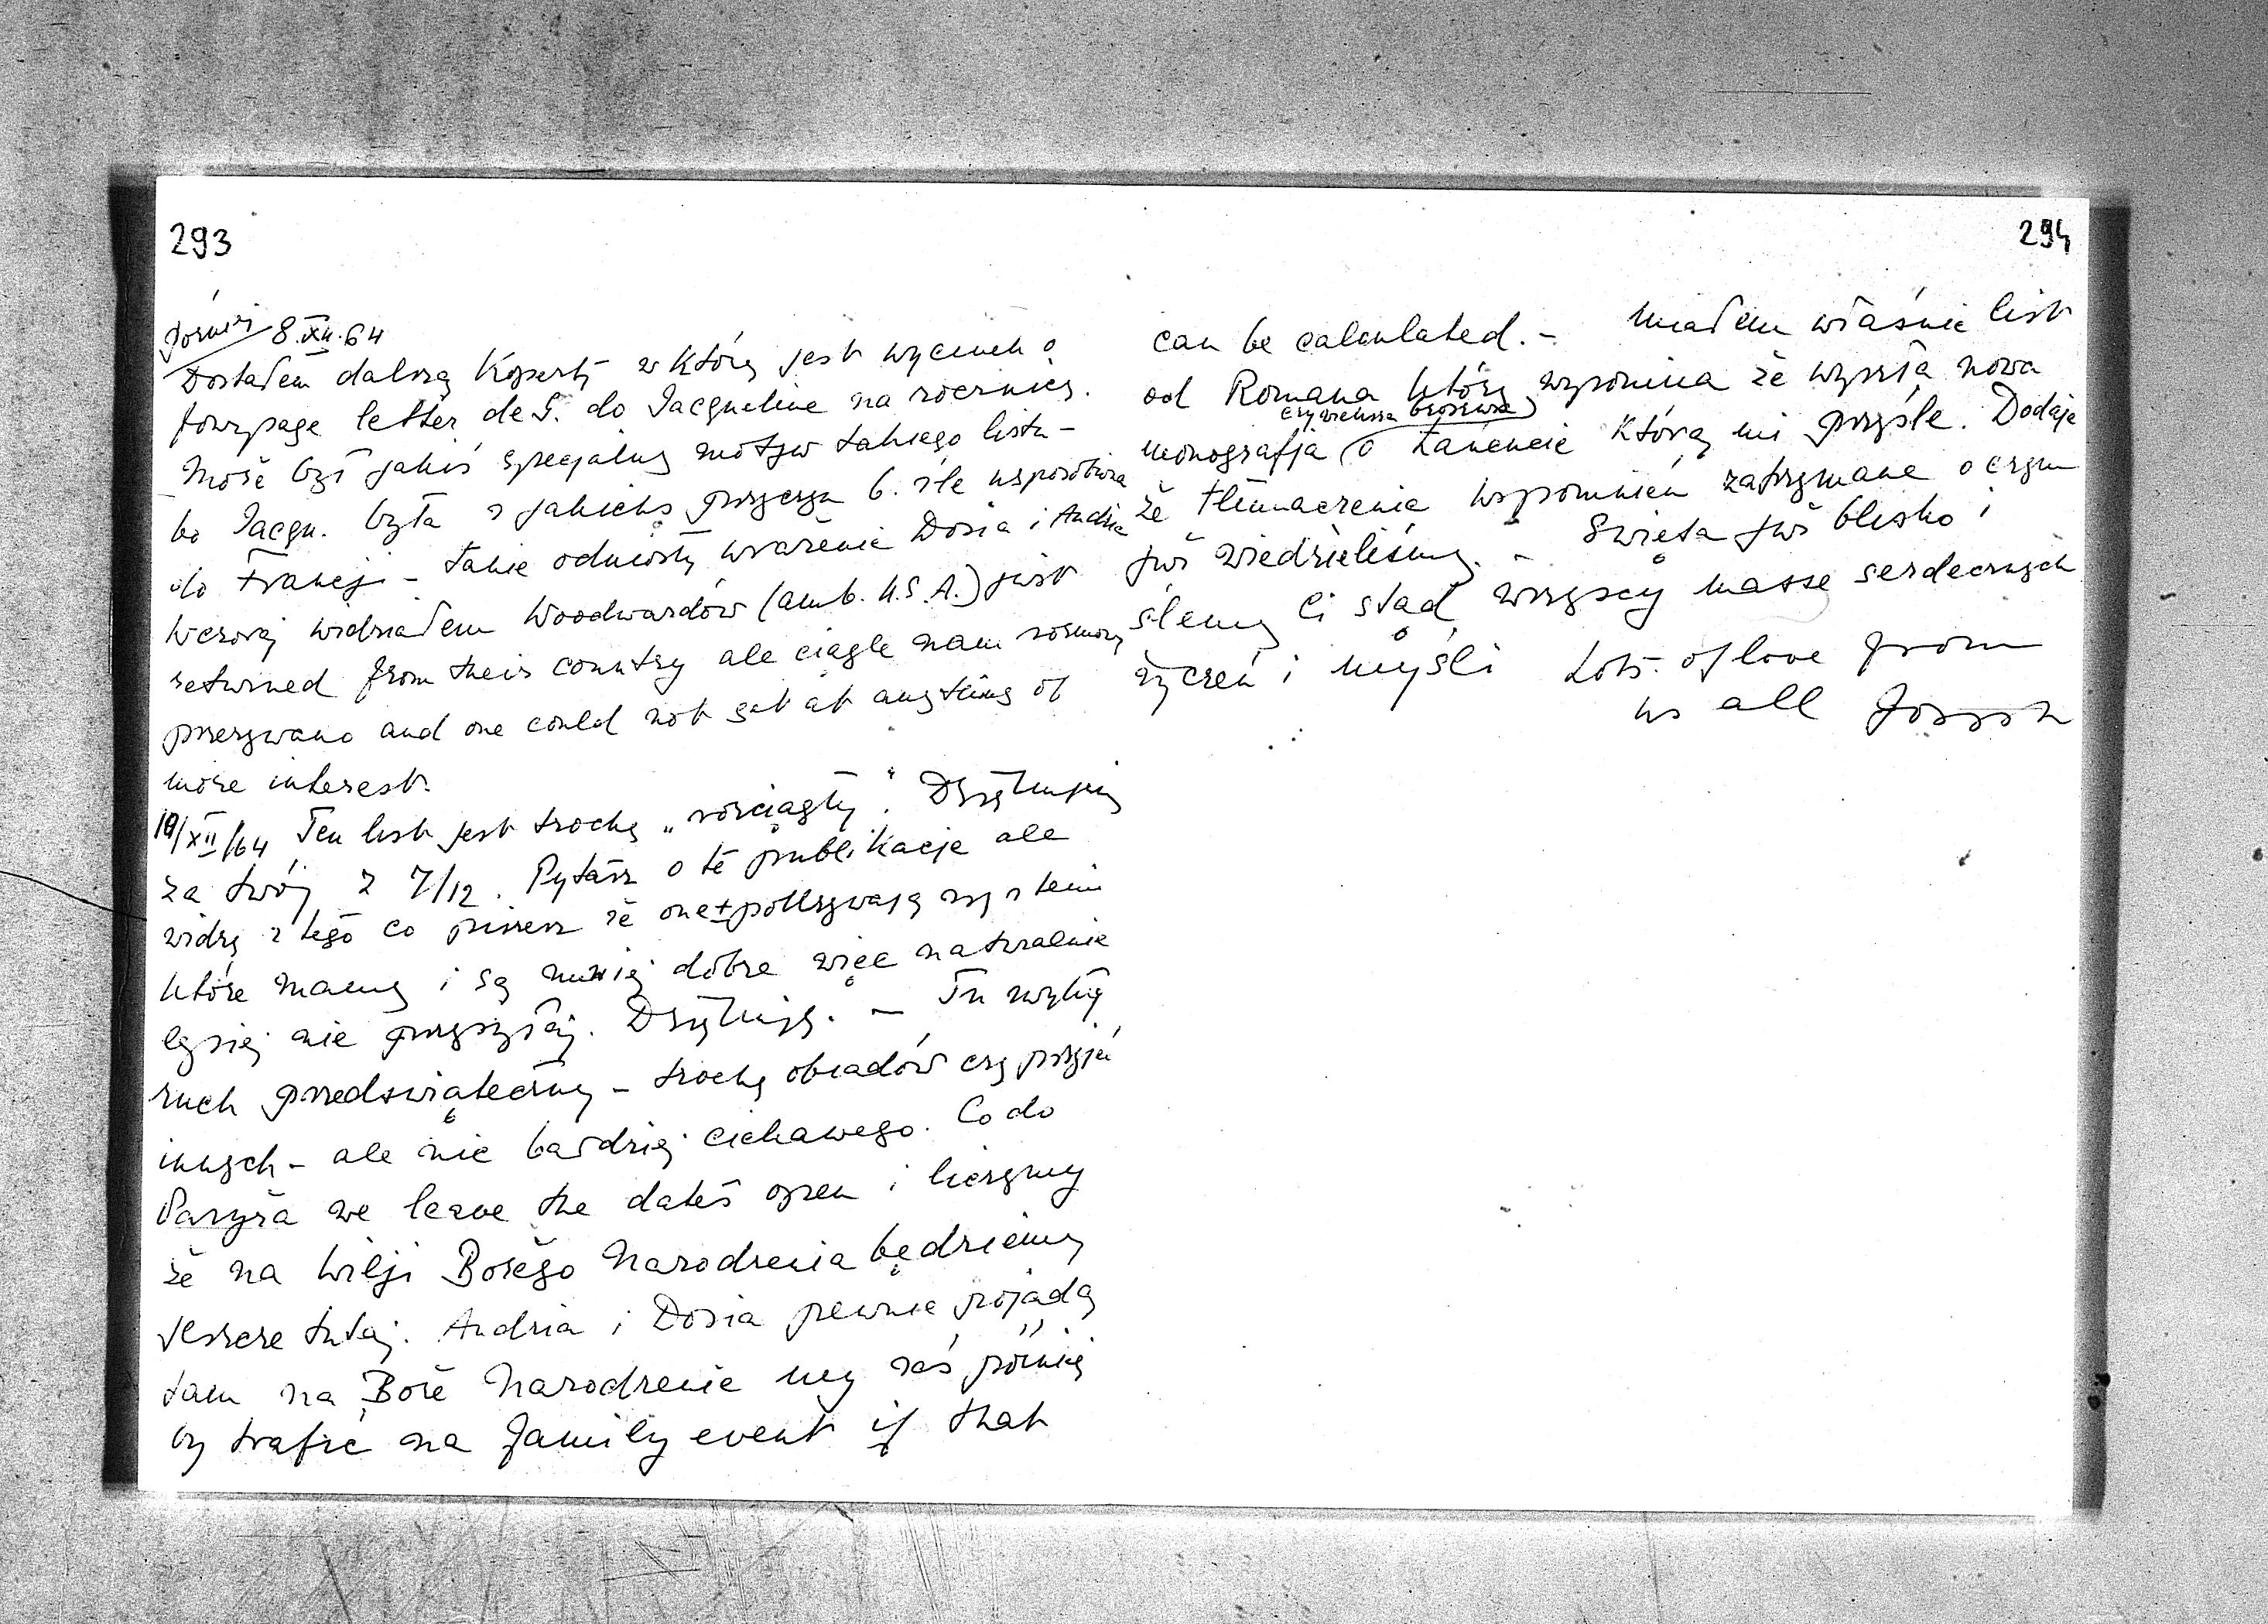 293
później 8.XII.64
Dostałem dalszą kopertę w której jest wycinek o
fourpage letter de G. do Jacqueline na rocznicę.
Może był jakiś specjalny motyw takiego listu -
bo Jacqu. była z jakichś przyczyn b. źle usposobiona
do Francji - takie odniosły wrażenie Dosia i Andzia
Wczoraj widziałem Woodwardów (amb. U.S.A.) just
returned from their country ale ciągle nam rozmowę
przerywano and one could not get at anything of
more interest.
10/XII/64 Ten list jest trochę „rozciągły". Dziękuję
za twój z 7/12. Pytasz o te publikacje ale
widzę z tego co piszesz że one ± pokrywają się z temi
które mamy i są mniej dobre więc naturalnie
lepiej nie przysyłaj. Dziękuję. - Tu zwykły
ruch przedświąteczny - trochę obiadów czy przyjęć
innych - ale nic bardziej ciekawego. Co do
Paryża we leave the dates open i liczymy
że na Wilji Bożego Narodzenia będziemy
jeszcze tutaj. Andzia i Dosia pewnie pojadą
tam na Boże Narodzenie my zaś później
by trafić na family event if that
294
can be calculated. - Miałem właśnie list
od Romana który wspomina że wyszła nowa
monografja o Łańcucie którą mi przyśle. Dodaje
że tłumaczenie wspomnień zatrzymane o czym
już wiedzieliśmy. - Święta już blisko i
ślemy Ci stąd wszyscy masse serdecznych
życzeń i myśli Lots of love from
us all Joseph